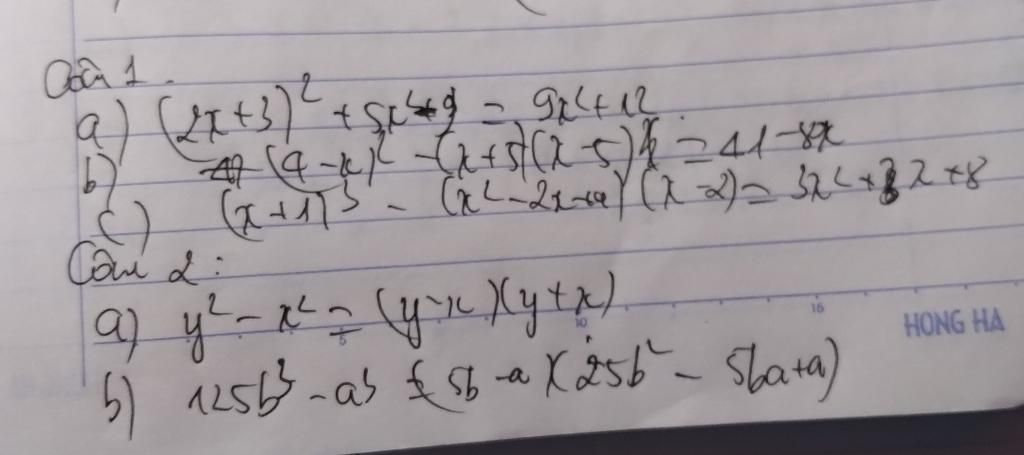 Câu 1.
a) (2x+3)² + 5x²+9 = 9x²+12
b) (4-x)² - (x+5)(x-5) = 41-8x
c) (x+1)³ - (x²-2x+4)(x-2) = 3x²+3x+8
Câu 2:
a) y² - x² = (y-x)(y+x)
5 10 15 HONG HA
b) 125b³ - a³ = (5b-a)(25b² - 5ba+a)